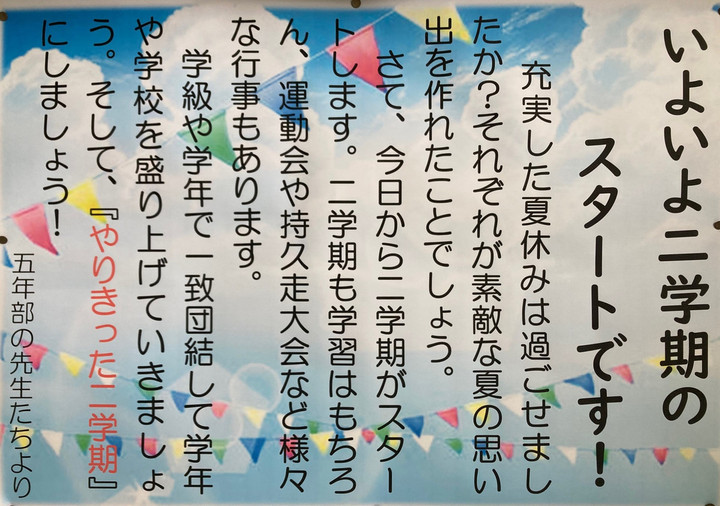 いよいよ二学期の
スタートです！
充実した夏休みは過ごせまし
たか？それぞれが素敵な夏の思い
出を作れたことでしょう。
さて、今日から二学期がスター
トします。二学期も学習はもちろ
ん、運動会や持久走大会など様々
な行事もあります。
学級や学年で一致団結して学年
や学校を盛り上げていきましょ
う。そして、『やりきった二学期』
にしましょう！
五年部の先生たちより